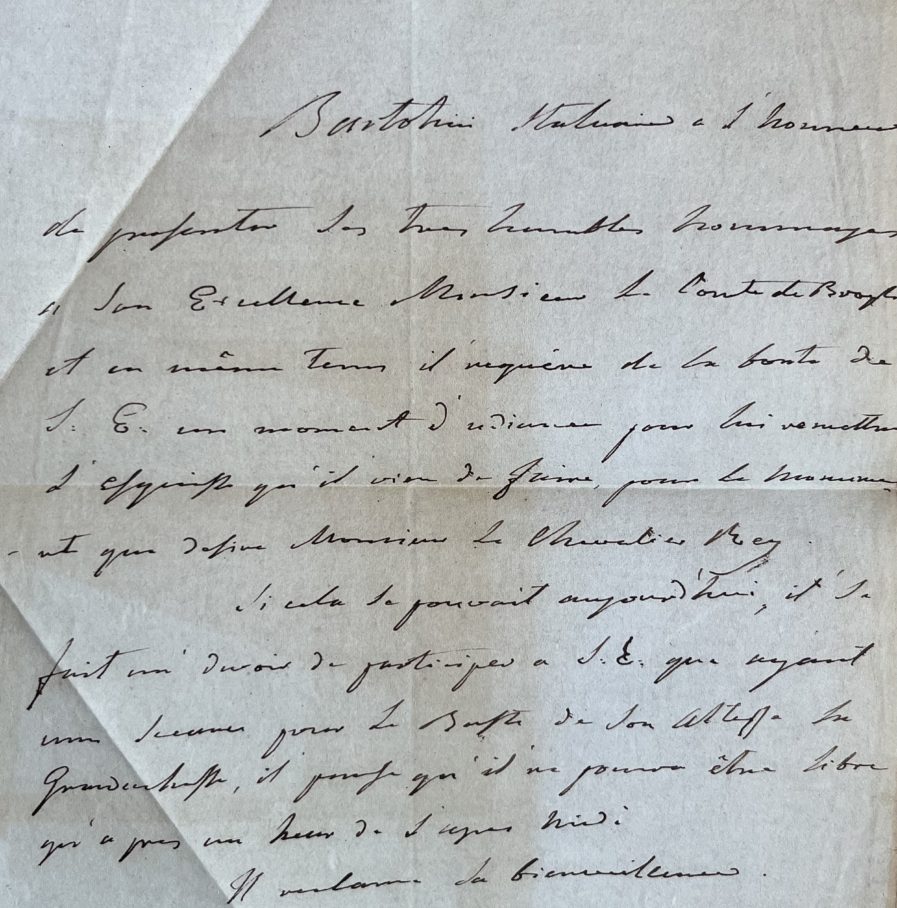 Bartolini Statuaire a l'honneur
de presenter ses tres humbles hommages
a Son Excellence Monsieur Le Conte de
et en même tems il requère de la bonté de
S. E. un moment d'udience pour lui remettre
l'esquisse qu'il vien de faire, pour le monume-
-nt que desire Monsieur Le Chevalier Rey.
Si cela se pouvait aujourd'hui, il se
fait un devoir de participer a S. E. que ayant
une Sceance pour Le Buste de Son Altesse La
Granduchesse, il pense qu'il ne pourra être libre
qu'a pres un heur de l'apres midi
Il reclame sa bienveillence.